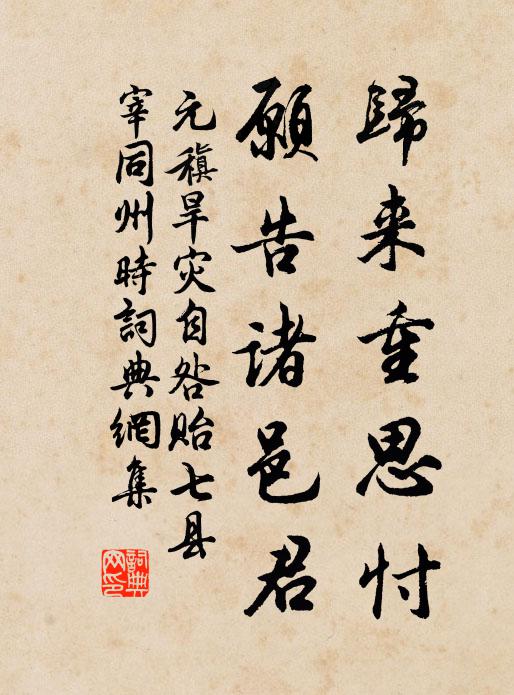 歸来重思忖
願告諸邑君
元稹旱灾自咎貽七县
宰同州時詞典網集
詞典網印